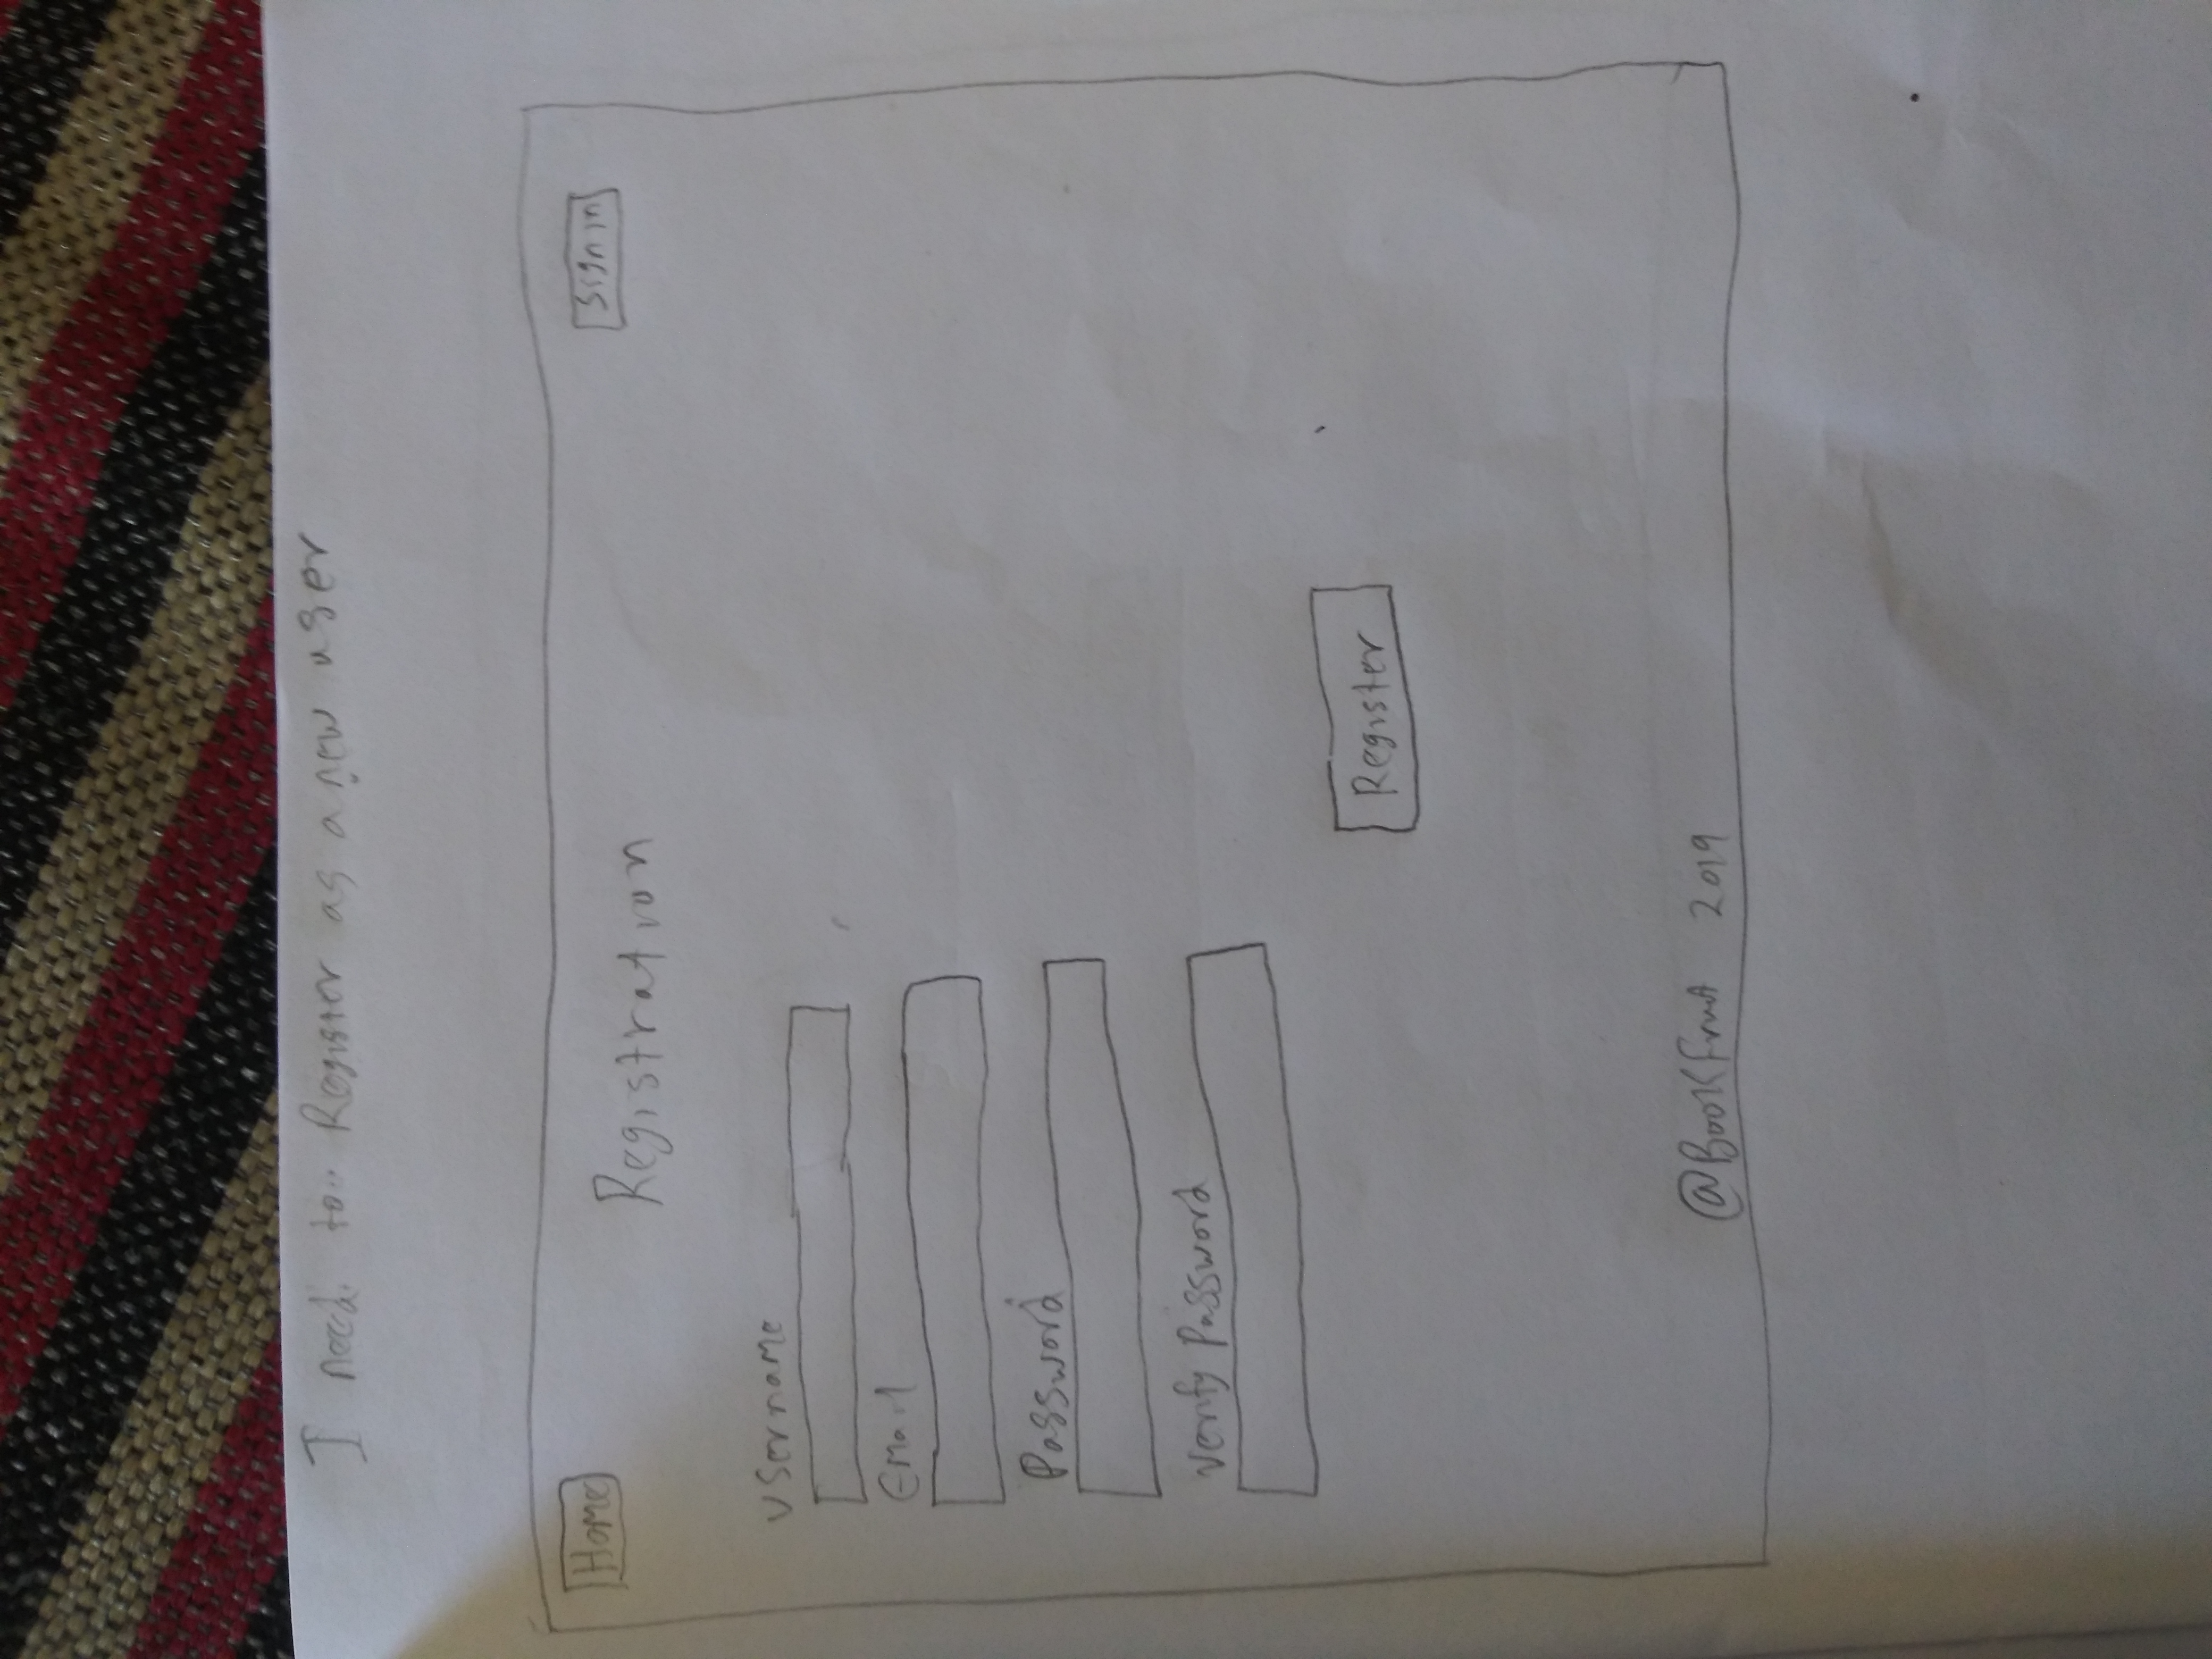 I need to Register as a new user
Home
Registration
Sign in
Username
Email
Password
Verify Password
Register
@BookFruit 2019